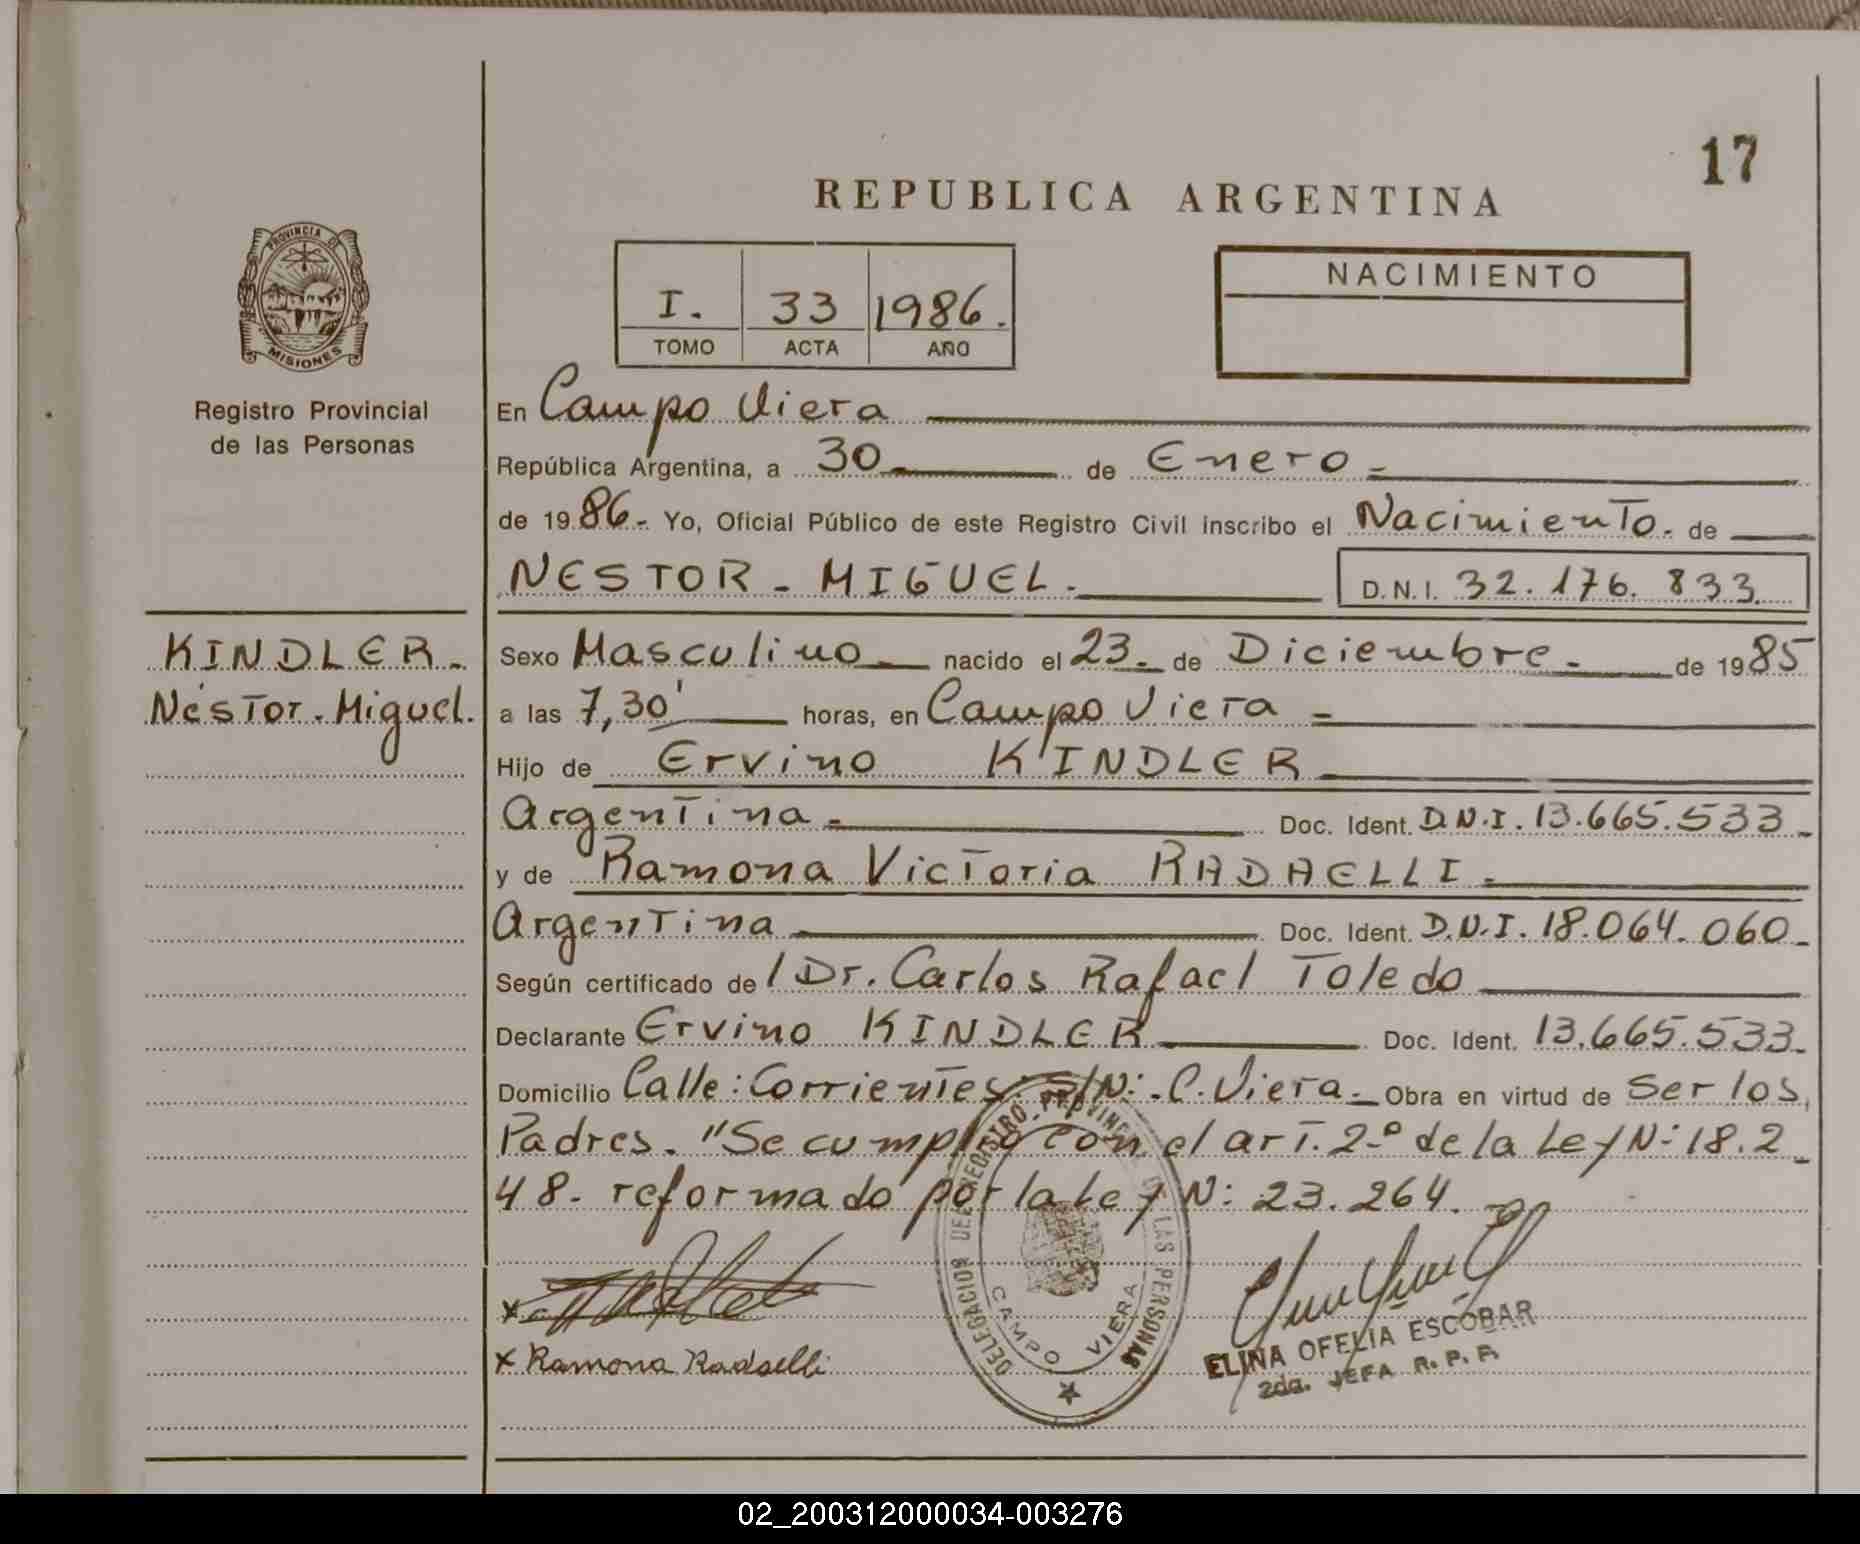 17
REPUBLICA ARGENTINA
PROVINCIA DE
MISIONES
Registro Provincial
de las Personas
I. 33 1986.
TOMO ACTA AÑO
NACIMIENTO
En Campo Viera
República Argentina, a 30 de Enero.
de 1986. Yo, Oficial Público de este Registro Civil inscribo el Nacimiento. de
NESTOR - MIGUEL.
D.N.I. 32.176.833.
KINDLER.
Néstor. Miguel.
Sexo Masculino nacido el 23. de Diciembre. de 1985
a las 7,30' horas, en Campo Viera
Hijo de Ervino KINDLER
Argentina. Doc. Ident. D.N.I. 13.665.533
y de Ramona Victoria RADAELLI.
Argentina Doc. Ident. D.N.I. 18.064.060
Según certificado del Dr. Carlos Rafael Toledo
Declarante Ervino KINDLER Doc. Ident. 13.665.533.
Domicilio Calle: Corrientes. S/N: .C. Viera. Obra en virtud de Ser los
Padres. "Se cumplio con el art. 2º de la Ley N: 18.2
48. reformado por la Ley N: 23.264.
DELEGACION DEL REGISTRO PROVINCIAL DE LAS PERSONAS
CAMPO VIERA
x
x Ramona Radaelli
ELINA OFELIA ESCOBAR
2da. JEFA R. P. P.
02_200312000034-003276